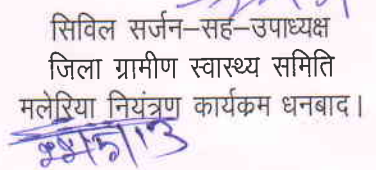 सिविल सर्जन–सह–उपाध्यक्ष
जिला ग्रामीण स्वास्थ्य समिति
मलेरिया नियंत्रण कार्यकम धनबाद।